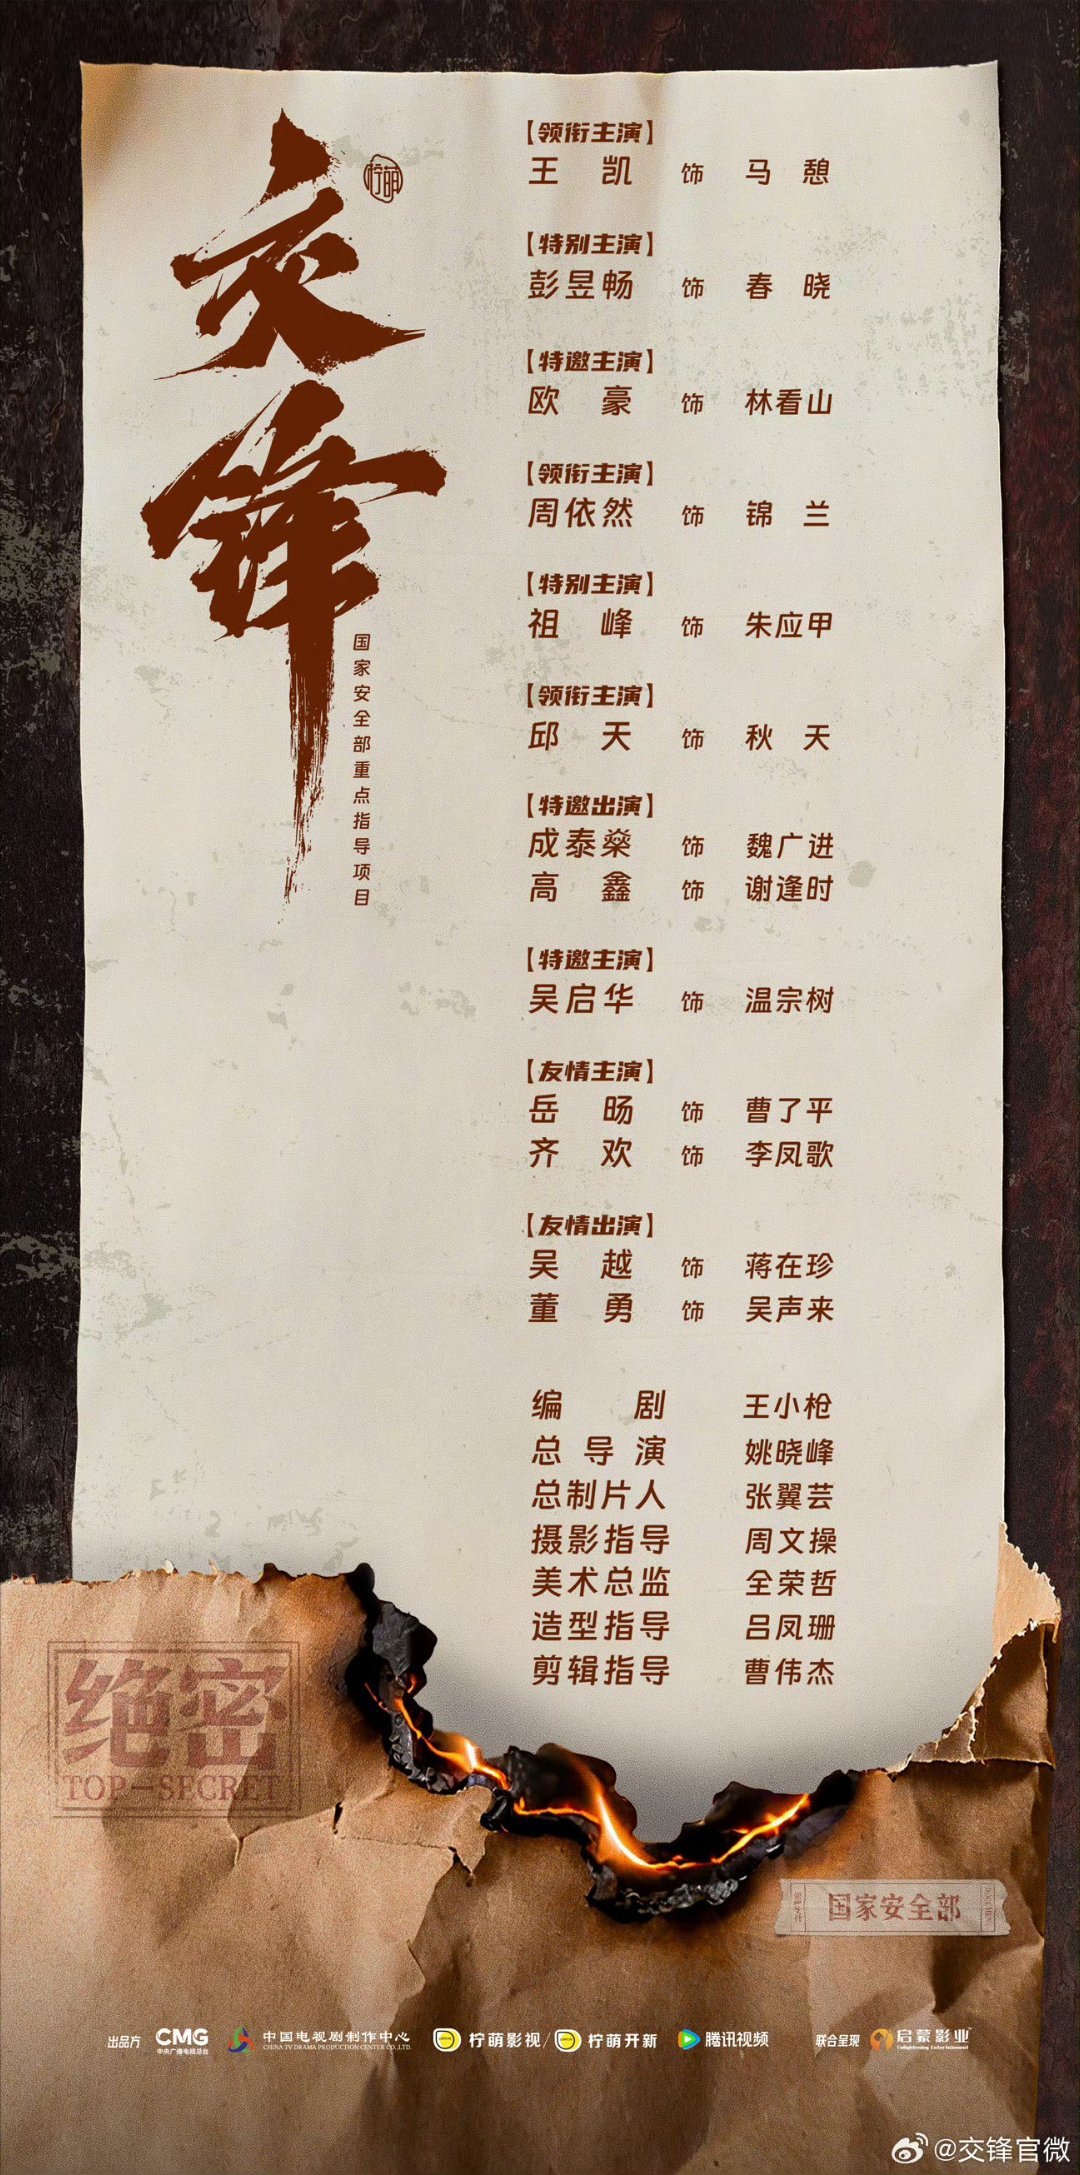 交锋
柠萌
国家安全部重点指导项目
【领衔主演】
王凯 饰 马憩
【特别主演】
彭昱畅 饰 春晓
【特邀主演】
欧豪 饰 林看山
【领衔主演】
周依然 饰 锦兰
【特别主演】
祖峰 饰 朱应甲
【领衔主演】
邱天 饰 秋天
【特邀出演】
成泰燊 饰 魏广进
高鑫 饰 谢逢时
【特邀主演】
吴启华 饰 温宗树
【友情主演】
岳旸 饰 曹了平
齐欢 饰 李凤歌
【友情出演】
吴越 饰 蒋在珍
董勇 饰 吴声来
编剧 王小枪
总导演 姚晓峰
总制片人 张翼芸
摄影指导 周文操
美术总监 全荣哲
造型指导 吕凤珊
剪辑指导 曹伟杰
绝密
TOP-SECRET
国家安全部
出品方 CMG 中央广播电视总台 中国电视剧制作中心 CHINA TV DRAMA PRODUCTION CENTER CO.,LTD. 柠萌影视/柠萌开新 腾讯视频 联合呈现 启蒙影业 Enlightening Entertainment
@交锋官微